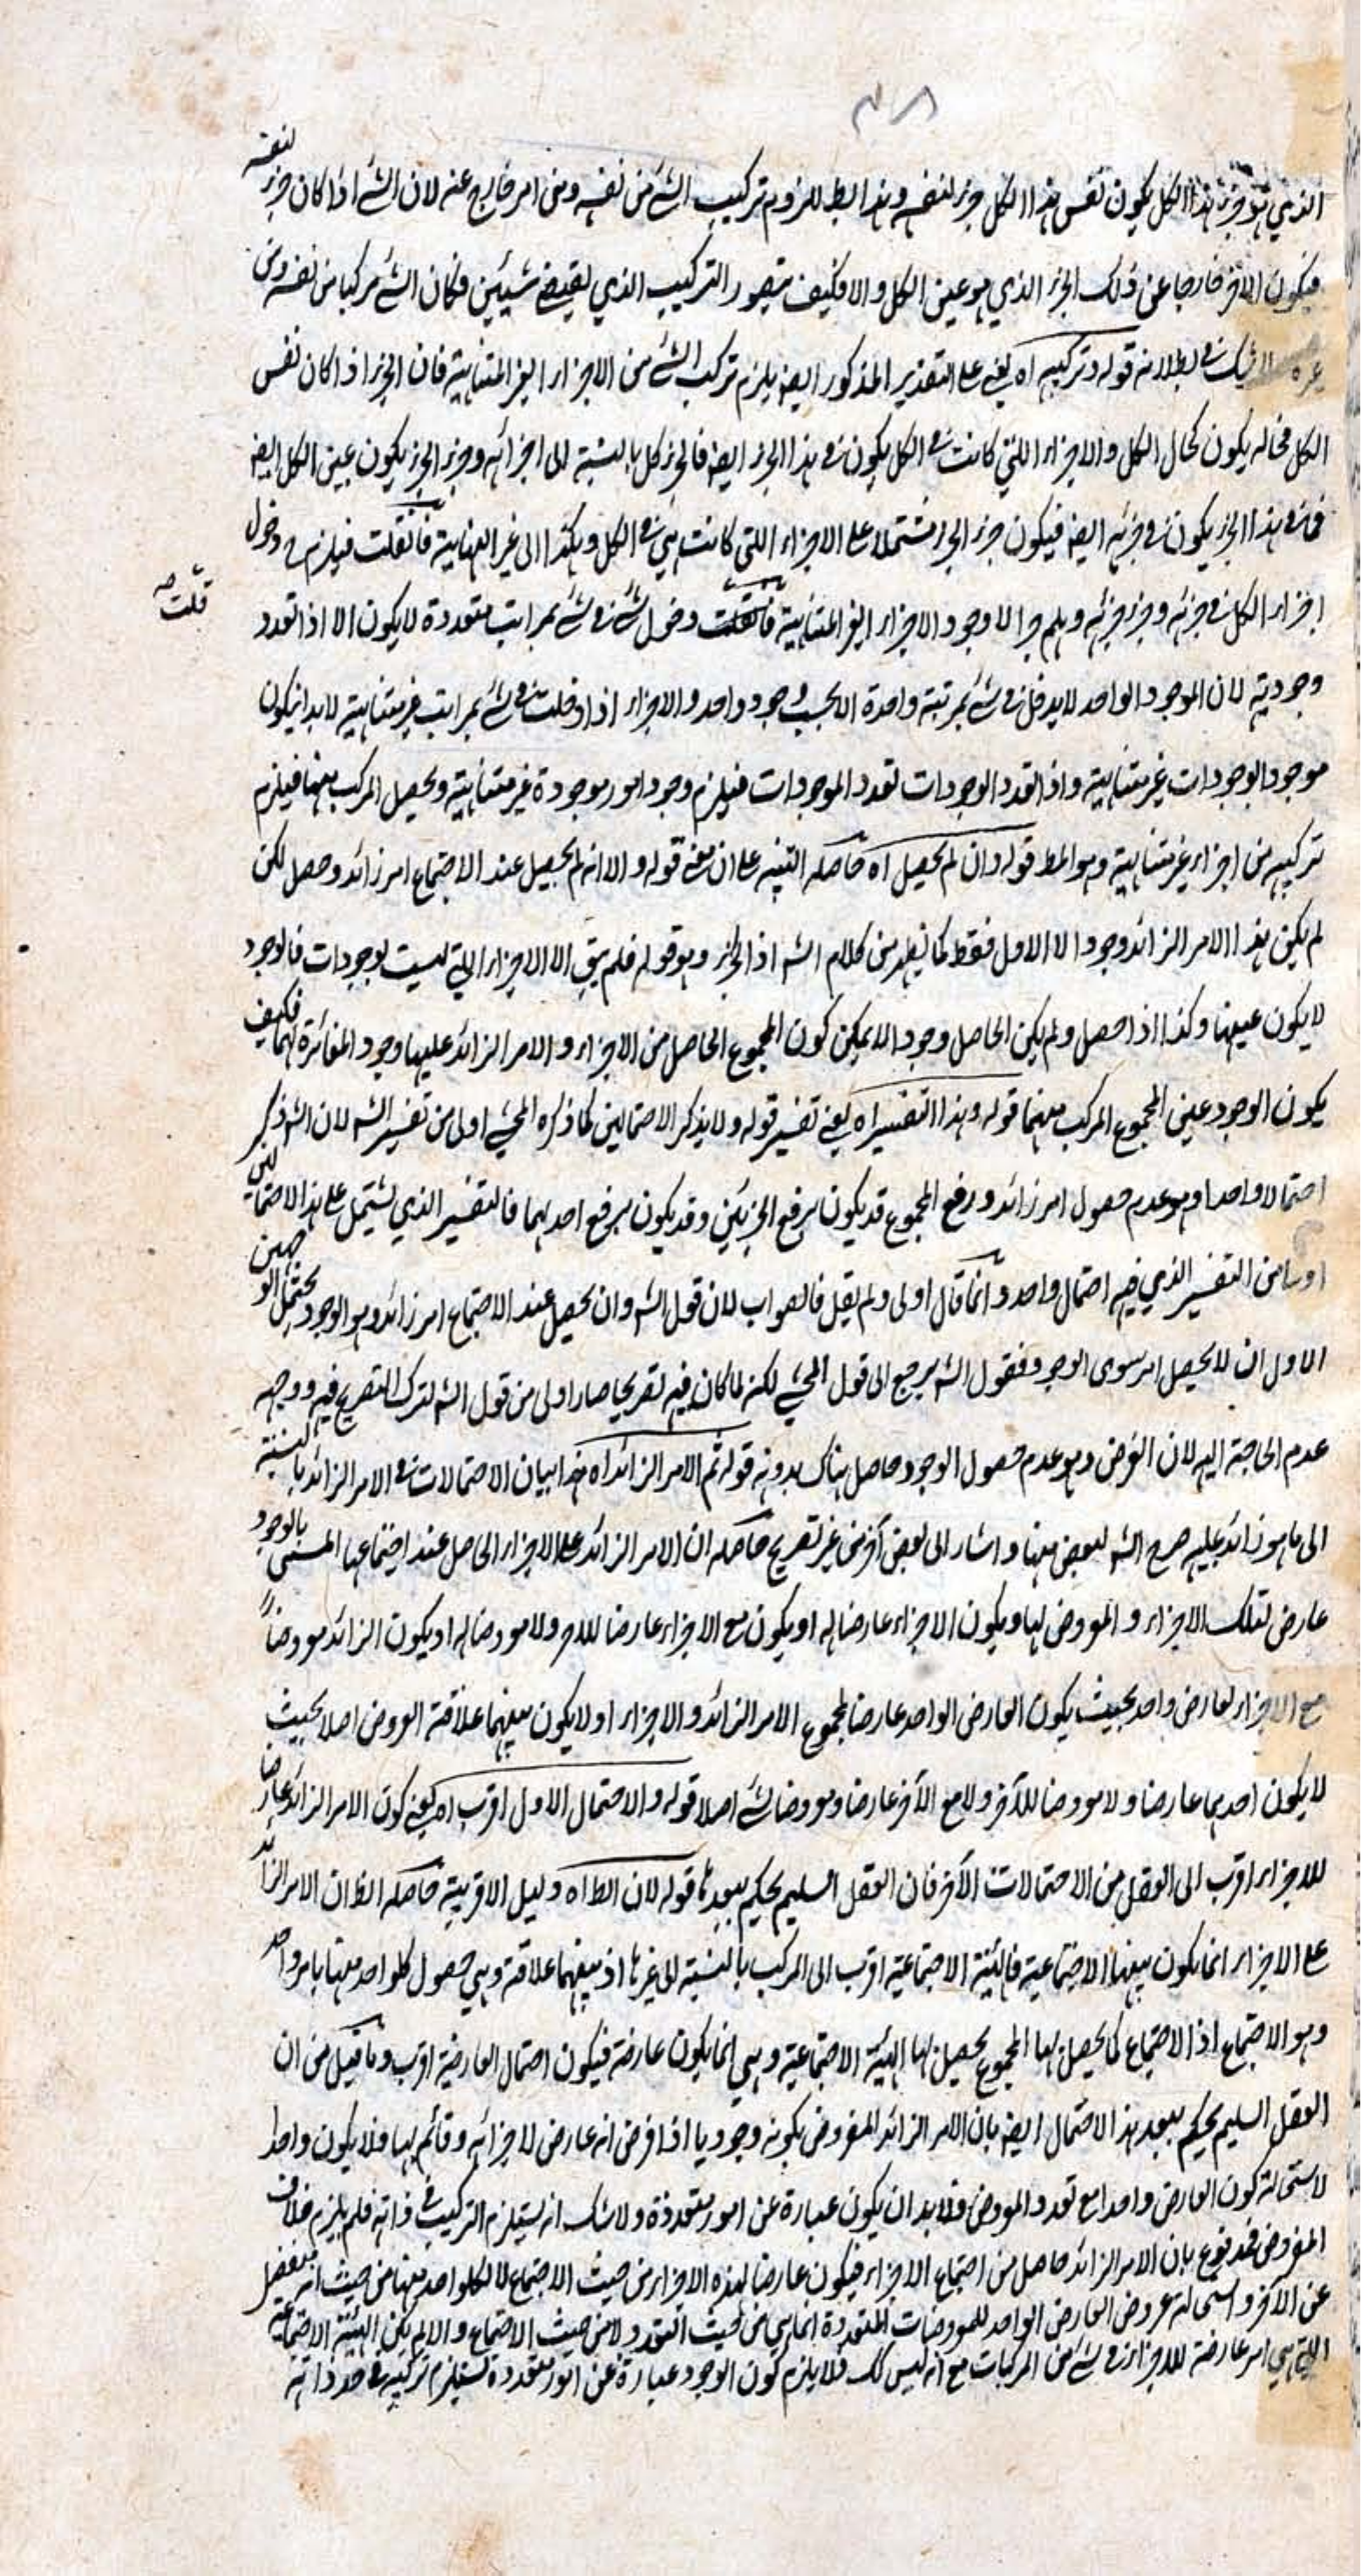 ٣٨
الذي هو جزء هذا الكل يكون نفس هذا الكل جزء لنفسه وهذا بط للزوم تركيب الشئ من نفسه ومن امر خارج عنه لان الشئ اذا كان جزء لنفسه
فيكون الاخر خارجا عن ذلك الجزء الذي هو عين الكل والا فكيف يتصور التركيب الذي يقتضے شيئين فكان الشئ مركبا من نفسه ومن
غيره لا شك في بطلانه قوله وتركبه اه يعني على التقدير المذكور ايضه يلزم تركب الشئ من الاجزاء الغير المتناهية فان الجزء اذا كان نفس
الكل فحاله يكون كحال الكل والاجزاء اللتي كانت في الكل يكون في هذا الجزء ايضه فالجزء كل بالنسبة الى اجزائه وجزء الجزء يكون عين الكل ايضه
فما في هذا الجزء يكون في جزئه ايضه فيكون جزء الجزء مشتملا على الاجزاء اللتي كانت هي في الكل وهكذا الى غير النهاية فانقلت فيلزم ح دخول
اجزاء الكل في جزئه وجزء جزئه وهلم جرا لا وجود الاجزاء الغير المتناهية قلت دخول شئ في شئ بمراتب متعددة لا يكون الا اذا تعدد
قلت صه
وجوديته لان الموجود الواحد لا يدخل في شئ بمرتبة واحدة الا بحسب وجود واحد والاجزاء اذا دخلت في شئ بمراتب غير متناهية لابد انيكون
موجودا بوجودات غير متناهية واذا تعدد الوجودات تعدد الموجودات فيلزم وجود امور موجودة غير متناهية ويحصل المركب منها فيلزم
تركيبه من اجزاء غير متناهية وهو المط قوله وان لم يحصل اه حاصله التنبيه على ان معنى قوله والا انه لم يحصل عند الاجتماع امر زائد وحصل لكن
لم يكن هذا الامر الزائد وجودا لا الاول فقط كما يظهر من كلام الشه اذ الجزء وهو قوله فلم يبق الا الاجزاء اللتي ليست بوجودات فالوجود
لا يكون عينها وكذا اذا حصل ولم يكن الحاصل وجودا لا يمكن كون المجموع الحاصل من الاجزاء والامر الزائد عليها وجود المغائرة لهما فكيف
يكون الوجود عين المجموع المركب منهما قوله وهذا التفسير اه يعني تفسير قوله ولا بذكر الاحتمالين كما ذكره المحشي اولى من تفسير الشه لان الشه ذكر
احتمالا واحدا وهو عدم حصول امر زائد ورفع المجموع قد يكون برفع الجزئين وقد يكون برفع احدهما فالتفسير الذي يشتمل على هذا الاحتمالين
اولى من التفسير الذي فيه احتمال واحد وانما قال اولى ولم يقل فالصواب لان قول الشه وان يحصل عند الاجتماع امر زائد وهو الوجود يحتمل الوجهين
الاول ان لا يحصل امر سوى الوجود فقول الشه يرجع الى قول المحشي لكنه لما كان فيه تصريحا صار اولى من قول الشه لترك التصريح فيه ووجهه
عدم الحاجة اليه لان الغرض وهو عدم حصول الوجود حاصل هناك بدونه قوله ثم الامر الزائد اه هذا بيان الاحتمالات في الامر الزائد بالنسبة
الى ما هو زائد عليه صرح الشه لبعض منها واشار الى بعض آخر من غير تصريح حاصله ان الامر الزائد على الاجزاء الحاصل عند اجتماعها المسمى بالوجود
عارض لتلك الاجزاء او المعروض لها ويكون الاجزاء عارضا له او يكون مع الاجزاء عارضا للامر ولا معروضا له او يكون الزائد معروضا
مع الاجزاء لعارض واحد بحيث يكون العارض الواحد عارضا لمجموع الامر الزائد والاجزاء او لا يكون بينهما علاقة العروض اصلا بحيث
لا يكون احدهما عارضا ولا معروضا للآخر ولا مع الآخر عارضا ومعروضا لشئ اصلا قوله والاحتمال الاول اقرب اه يعني كون الامر الزائد عارضا
للاجزاء اقرب الى العقل من الاحتمالات الآخر فان العقل السليم يحكم ببعدها قوله لان الظ اه دليل الاقربية حاصله الظ ان الامر الزائد
على الاجزاء انما يكون بينها الاجتماعية فالهيئة الاجتماعية اقرب الى المركب بالنسبة الى غيرها اذ بينهما علاقة وهي حصول كلواحد منها بامر واحد
وهو الاجتماع اذ الاجتماع كما يحصل بها المجموع يحصل بها الهيئة الاجتماعية وهي انما يكون عارضة فيكون احتمال العارضية اقرب وما قيل من ان
العقل السليم يحكم ببعد هذا الاحتمال ايضه بان الامر الزائد المفروض بكونه وجوديا اذا فرض انه عارض لاجزائه وقائم بها فلا يكون واحدا
لاستحالة كون العارض واحدا مع تعدد المعروض فلابد ان يكون عبارة عن امور متعددة ولا شك انه يستلزم التركيب في ذاته فلم يلزم خلاف
المفروض فمدفوع بان الامر الزائد حاصل من اجتماع الاجزاء فيكون عارضا لهذه الاجزاء من حيث الاجتماع لا لكلواحد منها من حيث انه منفصل
عن الآخر واستحالة عروض العارض الواحد للمعروضات المتعددة انما هي من حيث التعدد ولا من حيث الاجتماع والا لم يكن الهيئة الاجتماعية
اللتي هي امر عارضة للاجزاء في شئ من المركبات مع انه ليس كك فلا يلزم كون الوجود عبارة عن امور متعددة تستلزم تركيبه في حد ذاته